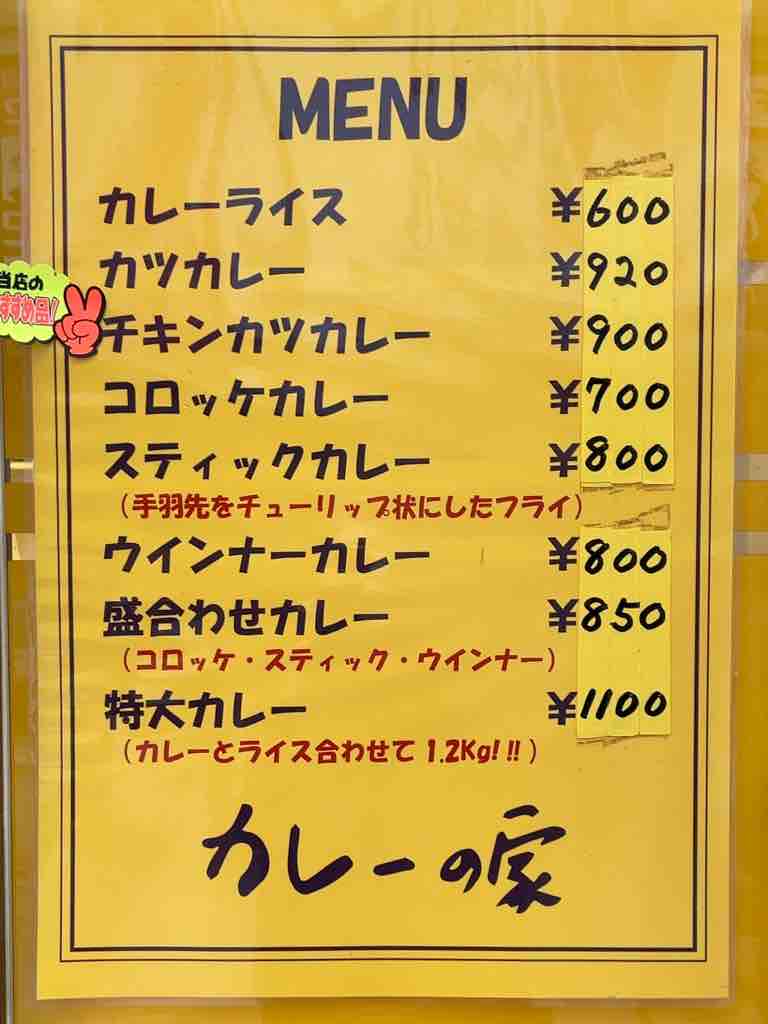 MENU
カレーライス ¥600
カツカレー ¥920
当店の
すすめ品!
チキンカツカレー ¥900
コロッケカレー ¥700
スティックカレー ¥800
(手羽先をチューリップ状にしたフライ)
ウインナーカレー ¥800
盛合わせカレー ¥850
(コロッケ・スティック・ウインナー)
特大カレー ¥1100
(カレーとライス合わせて 1.2Kg!!!)
カレーの家